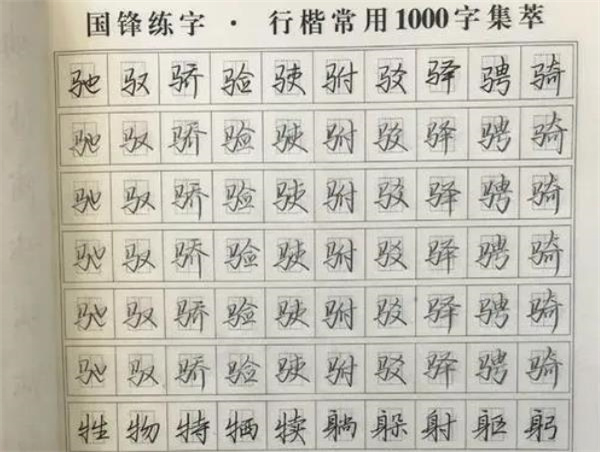 国锋练字 · 行楷常用1000字集萃
驰 驭 骄 验 驶 驸 驳 驿 骋 骑
驰 驭 骄 验 驶 驸 驳 驿 骋 骑
驰 驭 骄 验 驶 驸 驳 驿 骋 骑
驰 驭 骄 验 驶 驸 驳 驿 骋 骑
驰 驭 骄 验 驶 驸 驳 驿 骋 骑
驰 驭 骄 验 驶 驸 驳 驿 骋 骑
牲 物 特 牺 犊 躺 躲 射 躯 躬